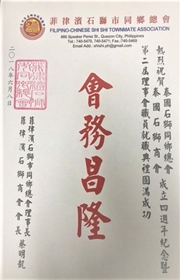 菲律濱石獅市同鄉總會
FILIPINO-CHINESE SHI SHI TOWNMATE ASSOCIATION
Quezon City, Philippines
Email Add.:
泰國石獅市同鄉總會
泰國石獅商會
成立四週年紀念暨
熱烈祝賀
第二屆理事會職員就職典禮圓滿成功
會務昌隆
菲律濱石獅市同鄉總會理事長
菲律濱石獅商會會長
蔡明龍
二〇一八年六月八日